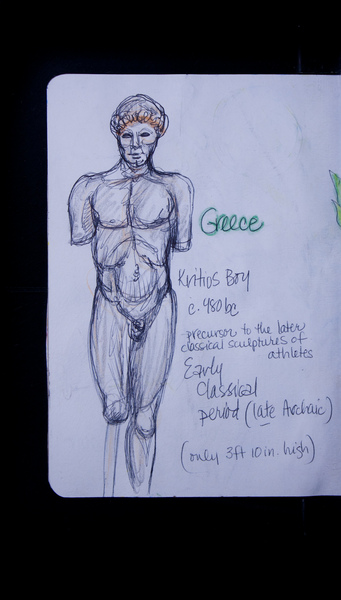 Greece
Kritios Boy
c. 480 bc
precursor to the later
classical sculptures of
athletes
Early
Classical
period (late Archaic)
(only 3ft 10in. high)